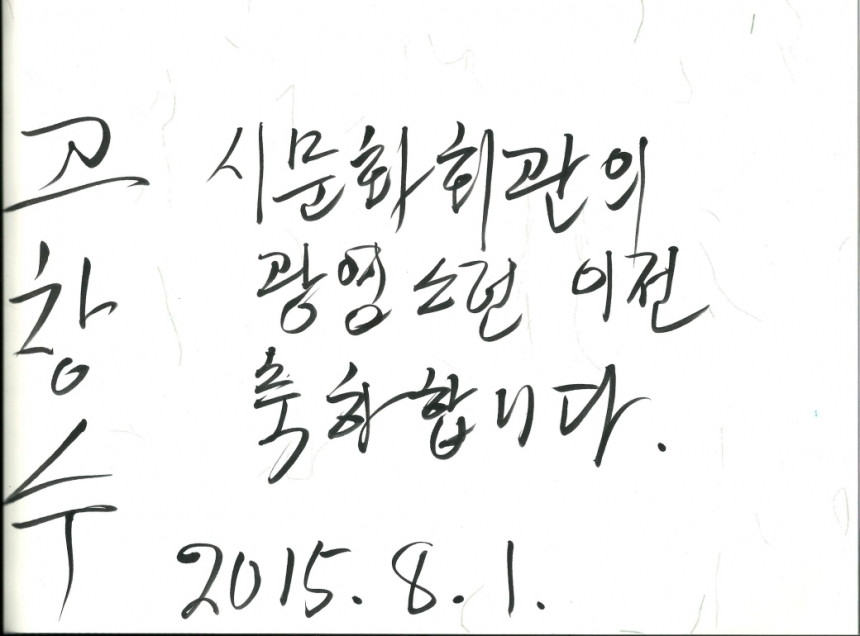 시문화회관의
광영스런 이전
축하합니다.
2015. 8. 1.
고창수